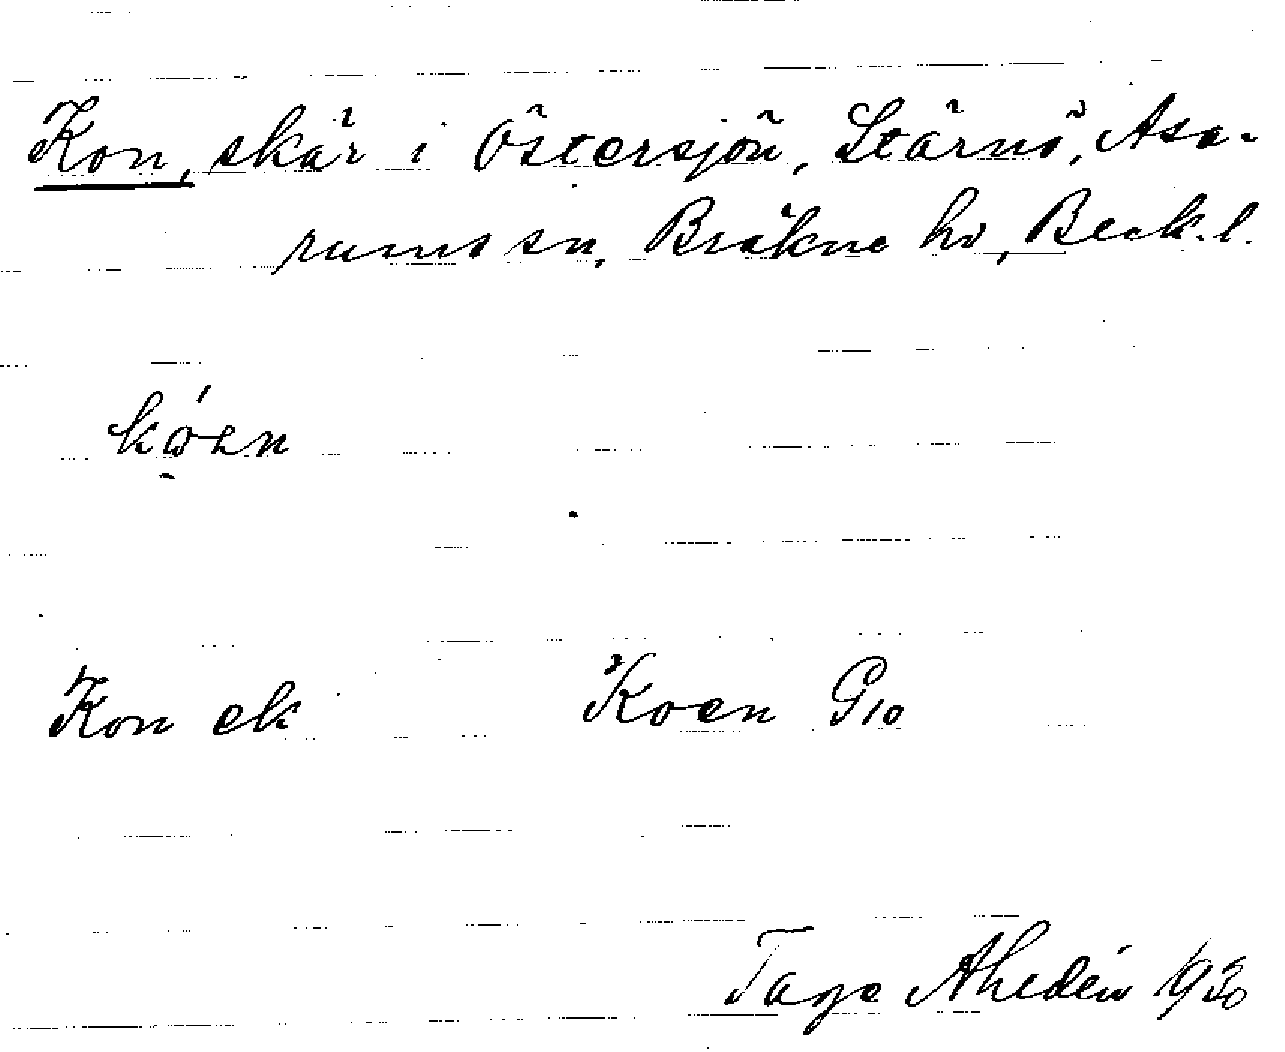 Kon, skär i Östersjön, Stärnö, Asa-
rums sn, Bräkne hd, Bleck. l.
Kon ek Koen G10
Tage Ahldén 1930